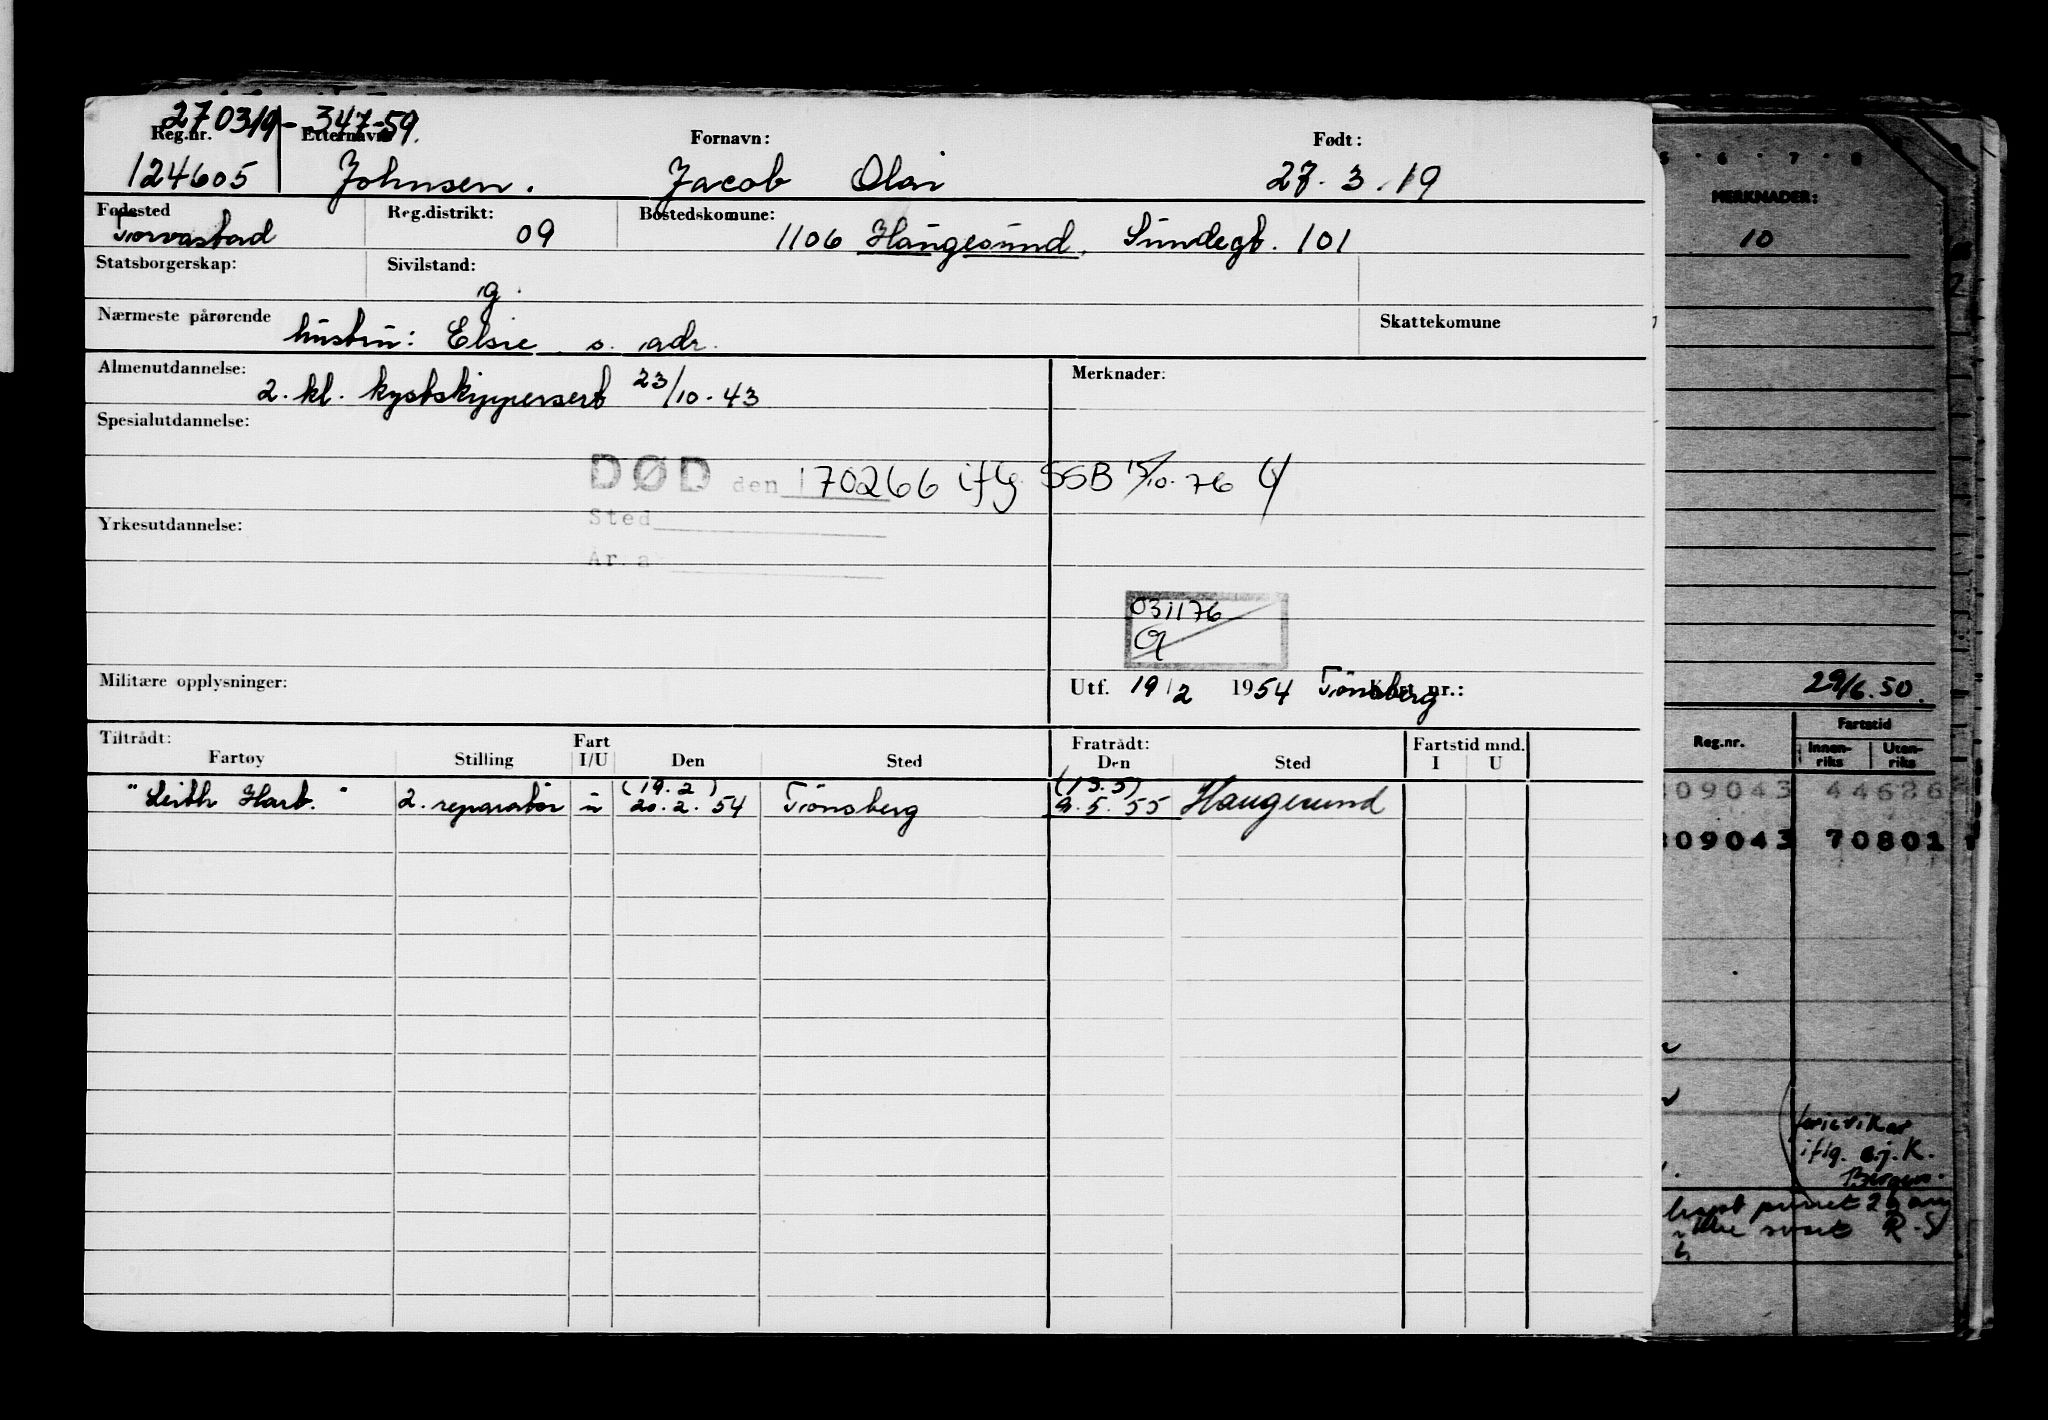 270319-347-59.
Reg.nr. Etternavn Fornavn: Født:
124605 Johnsen. Jacob Olai 27.3.19
Fødested Reg.distrikt: Bostedskomune:
Torvastad 09 1106 Haugesund, Sundegt. 101
Statsborgerskap: Sivilstand:
g.
Nærmeste pårørende Skattekomune
hustru: Elsie s. adr.
Almenutdannelse: Merknader:
2. kl. kystskippersert 23/10.43
Spesialutdannelse:
DØD den 170266 iflg SSB 15/10.76
Sted
Yrkesutdannelse:
År.a
031176
Militære opplysninger: Utf. 19/2 1954 Tønsberg Kort nr.:
Tiltrådt: Fart Fratrådt: Fartstid mnd.
Fartøy Stilling I/U Den Sted Den Sted I U
(19.2) (15.5)
"Leith Harb." 2. reparatør u 20.2.54 Tønsberg 9.5.55 Haugesund
5 · 6 · 7 · 8
MERKNADER:
10
29/6.50.
Reg.nr. Fartstid
Innen-riks Uten-riks
09043 44626
09043 70801
iflg. s.j.K.
Bergen.
purret 26 aug
R.S